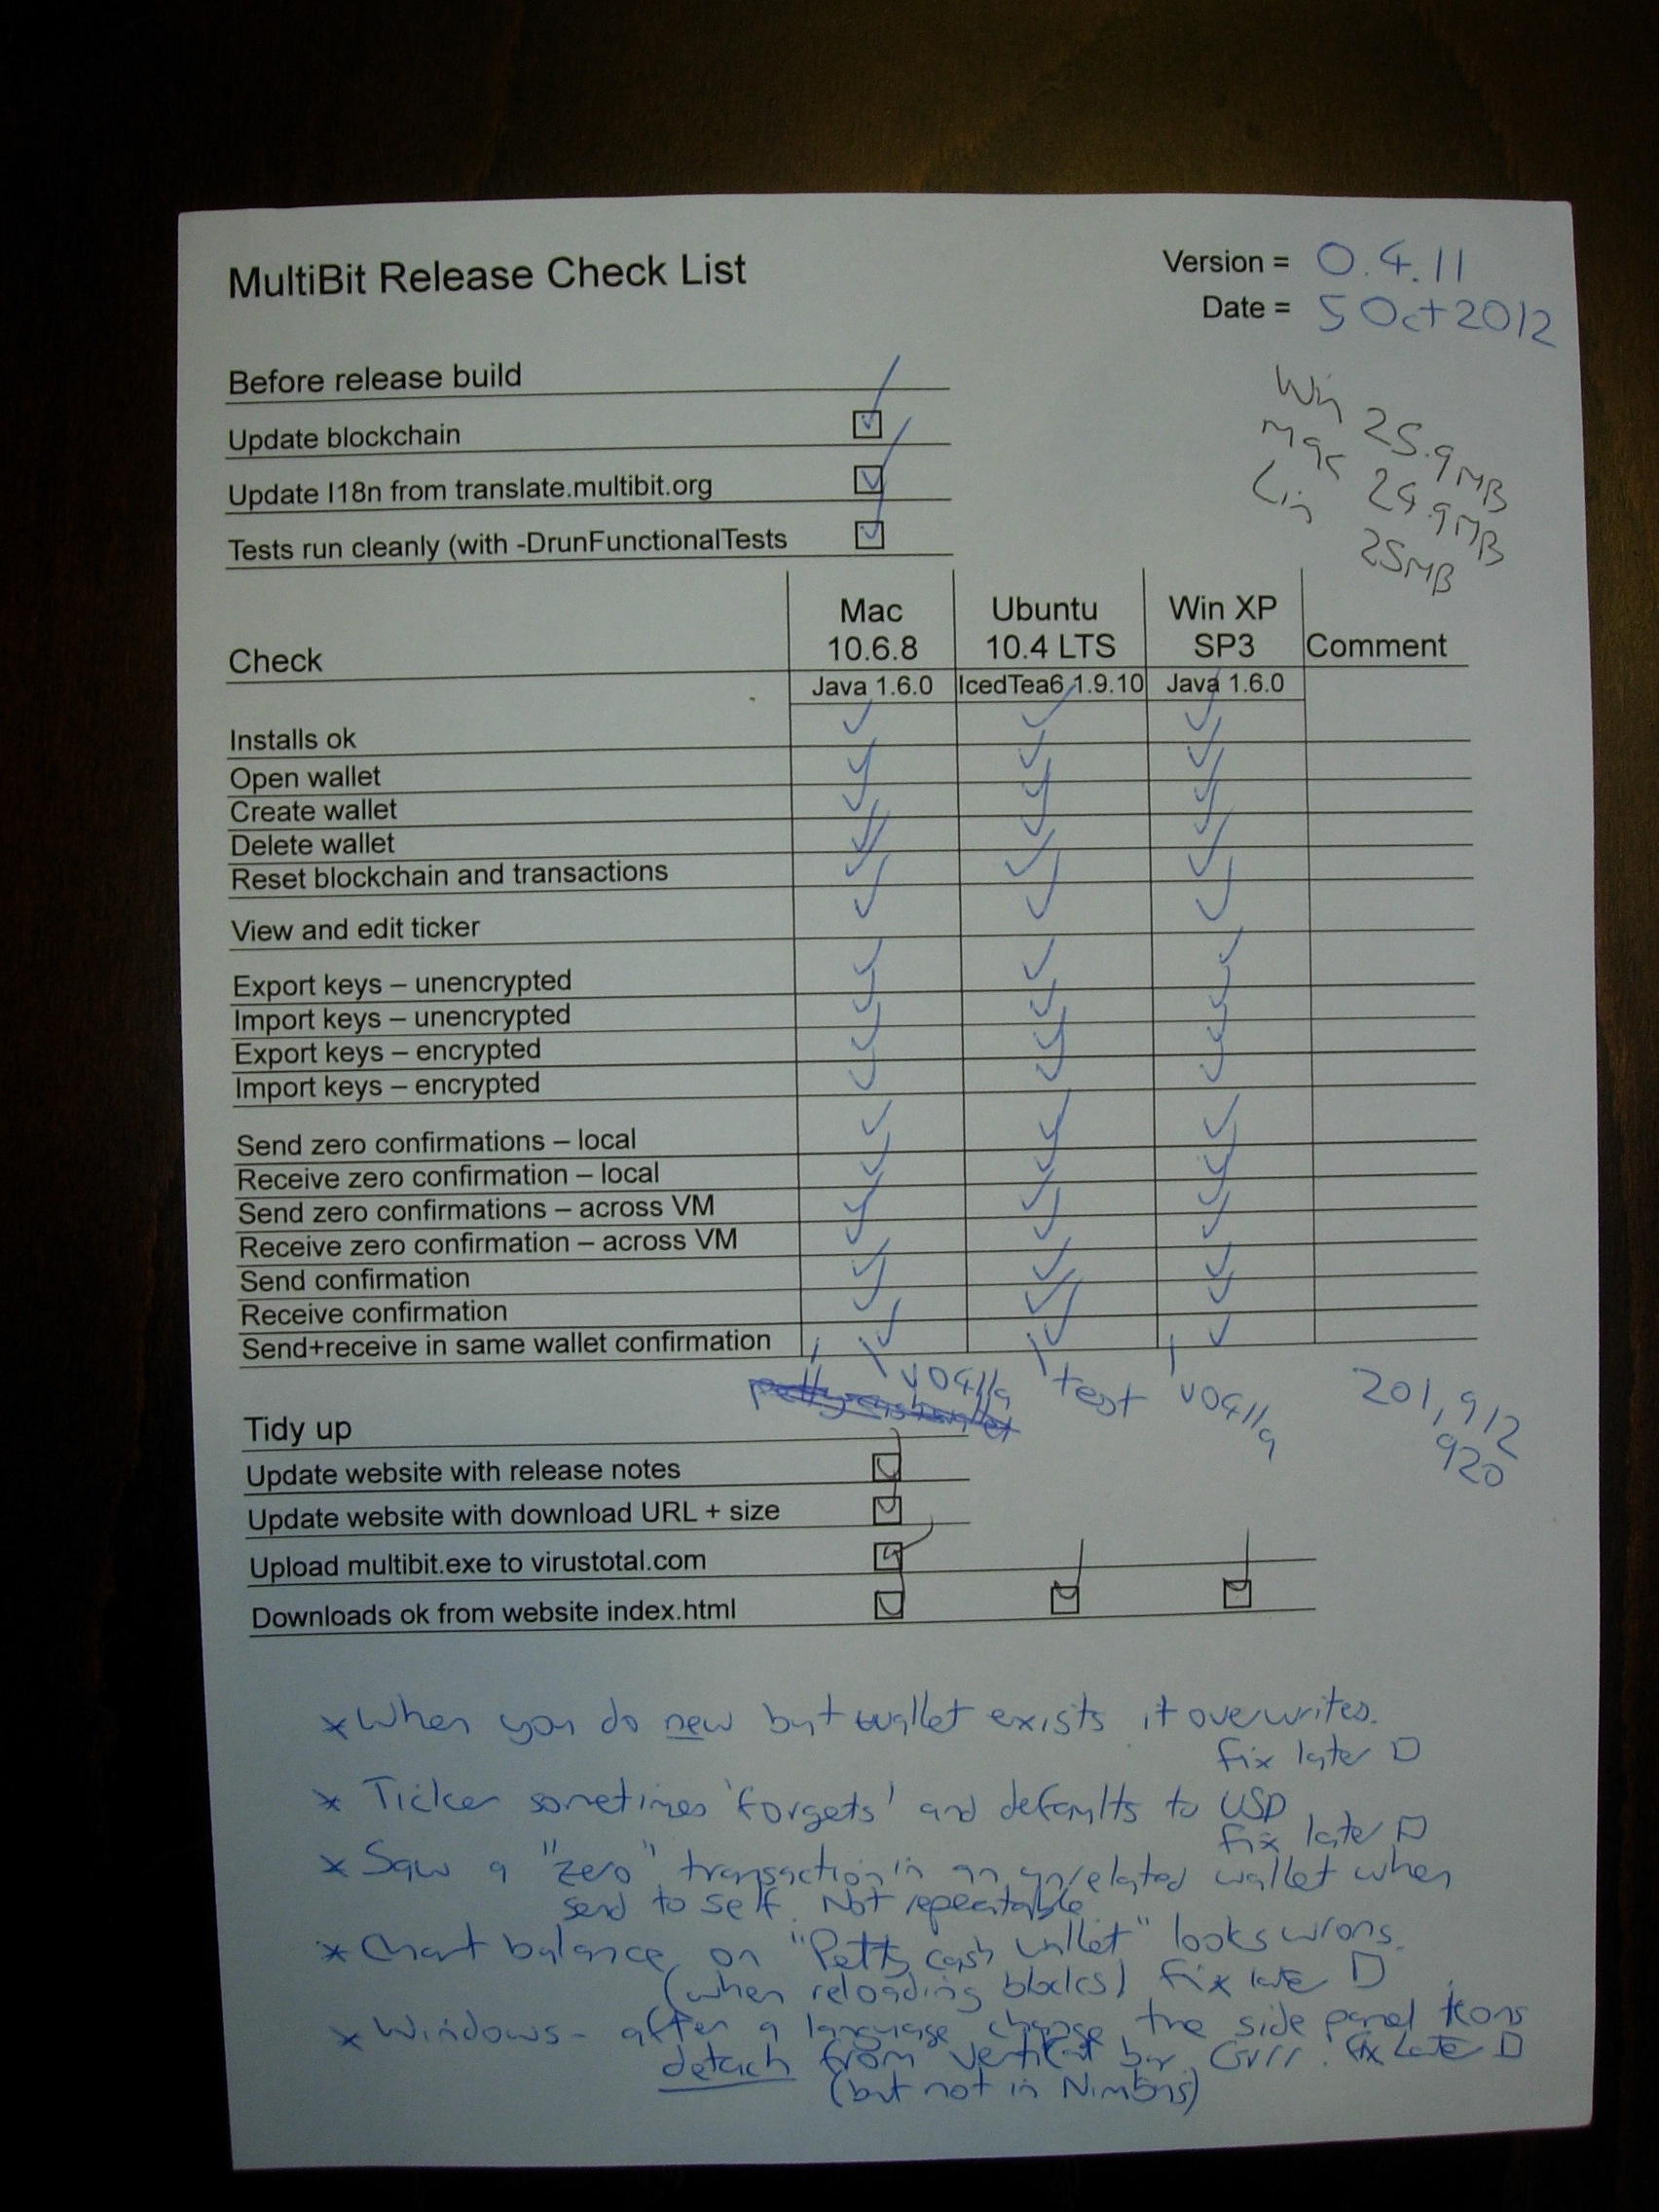 MultiBit Release Check List
Version = 0.4.11
Date = 5 Oct 2012
Before release build
Update blockchain
Update I18n from translate.multibit.org
Tests run cleanly (with -DrunFunctionalTests
Win 25.9MB
Mac 24.9MB
Lin 25MB
Check
Mac 10.6.8
Ubuntu 10.4 LTS
Win XP SP3
Comment
Java 1.6.0
IcedTea6 1.9.10
Java 1.6.0
Installs ok
Open wallet
Create wallet
Delete wallet
Reset blockchain and transactions
View and edit ticker
Export keys – unencrypted
Import keys – unencrypted
Export keys – encrypted
Import keys – encrypted
Send zero confirmations – local
Receive zero confirmation – local
Send zero confirmations – across VM
Receive zero confirmation – across VM
Send confirmation
Receive confirmation
Send+receive in same wallet confirmation
v0411a
test
v0411a
201,912
920
Tidy up
Update website with release notes
Update website with download URL + size
Upload multibit.exe to virustotal.com
Downloads ok from website index.html
* When you do new but wallet exists it overwrites.
fix later
* Ticker sometimes 'forgets' and defaults to USD
fix later
* Saw a "zero" transaction in an unrelated wallet when
send to self. Not repeatable
* Chart balance on "Petty cash wallet" looks wrong.
(when reloading blocks) fix late
* Windows - after a language change the side panel icons
detach from vertical bar. Grrr. fix late
(but not in Nimbus)